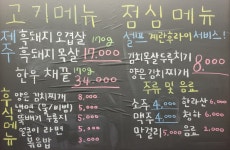 고기메뉴
제주 흑돼지 오겹살 170g
흑돼지 목살 17,000
한우 채끝 170g 34,000
후식메뉴
얇은 김치찌개 8,000
냉면 (물/비빔) 5,000
뚝배기 된장
얼큰이 라면 3,000
볶음밥 3,000
점심 메뉴
셀프 계란후라이 서비스!
김치제육두루치기
얇은 김치찌개 8,000
주류 및 음료
소주 4,000
맥주 4,000
막걸리 5,000
한라산 6,000
청하 6,000
음료 2,000